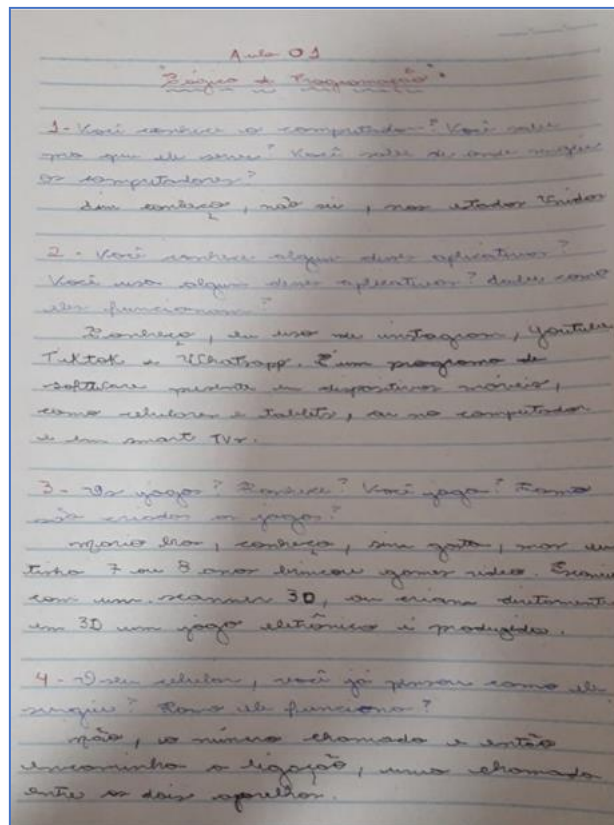 Aula 01
"Lógica de Programação".
1- Você conhece o computador? Você sabe
pra que ele serve? Você sabe de onde surgiu
os computadores?
Sim conheço, não sei, nos estados Unidos
2- Você conhece algum desses aplicativos?
Você usa algum desses aplicativos? Sabe como
eles funcionam?
Conheço, eu uso se instagram, youtube,
Tiktok e Whatsapp. É um programa de
software presente em dispositivos móveis,
como celulares e tablets, ou no computador
e em smart TVs.
3- Os jogos? Conhece? Você joga? Como
são criados os jogos?
Mario bros, conheço, sim gosto, mas eu
tinha 7 ou 8 anos brincou games video.
com um scanner 3D, ou criana diretamente
em 3D um jogo eletrônico é produzido.
4- O seu celular, você já pensou como ele
surgiu? Como ele funciona?
não, o número chamado e então
encaminha a ligação, uma chamada
entre os dois aparelhos.